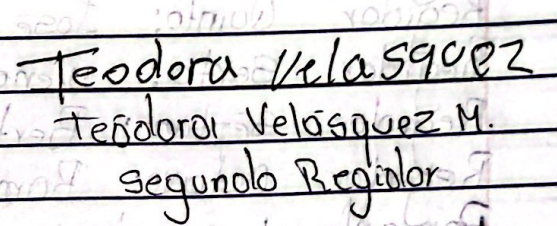 Teodora Velasquez
Teodora Velásquez M.
Segundo Regidor